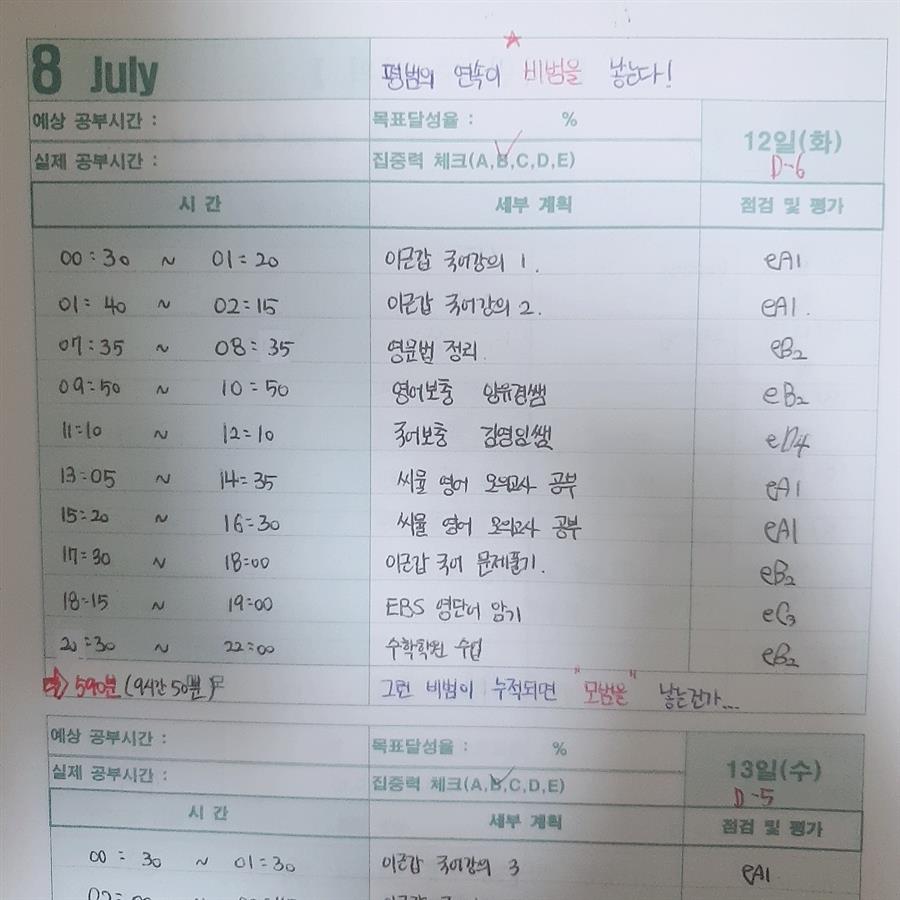 8 July 평범의 연속이 비범을 낳는다!
예상 공부시간 : 목표달성율 : % 12일(화)
실제 공부시간 : 집중력 체크(A,B,C,D,E) D-6
시 간 세부 계획 점검 및 평가
00:30 ~ 01:20 이근갑 국어강의 1. eA1
01:40 ~ 02:15 이근갑 국어강의 2. eA1.
07:35 ~ 08:35 영문법 정리. eB2
09:50 ~ 10:50 영어보충 양유경쌤 eB2
11:10 ~ 12:10 국어보충 김영일쌤 eD4
13:05 ~ 14:35 씨뮬 영어 모의고사 공부 eA1
15:20 ~ 16:30 씨뮬 영어 모의고사 공부 eA1
17:30 ~ 18:00 이근갑 국어 문제풀기. eB2
18:15 ~ 19:00 EBS 영단어 암기 eC3
20:30 ~ 22:00 수학학원 수업 eB2
590분 (9시간 50분) 그런 비범이 누적되면 "모범을" 낳는건가...
예상 공부시간 : 목표달성율 : % 13일(수)
실제 공부시간 : 집중력 체크(A,B,C,D,E) D-5
시 간 세부 계획 점검 및 평가
00:30 ~ 01:30 이근갑 국어강의 3 eA1